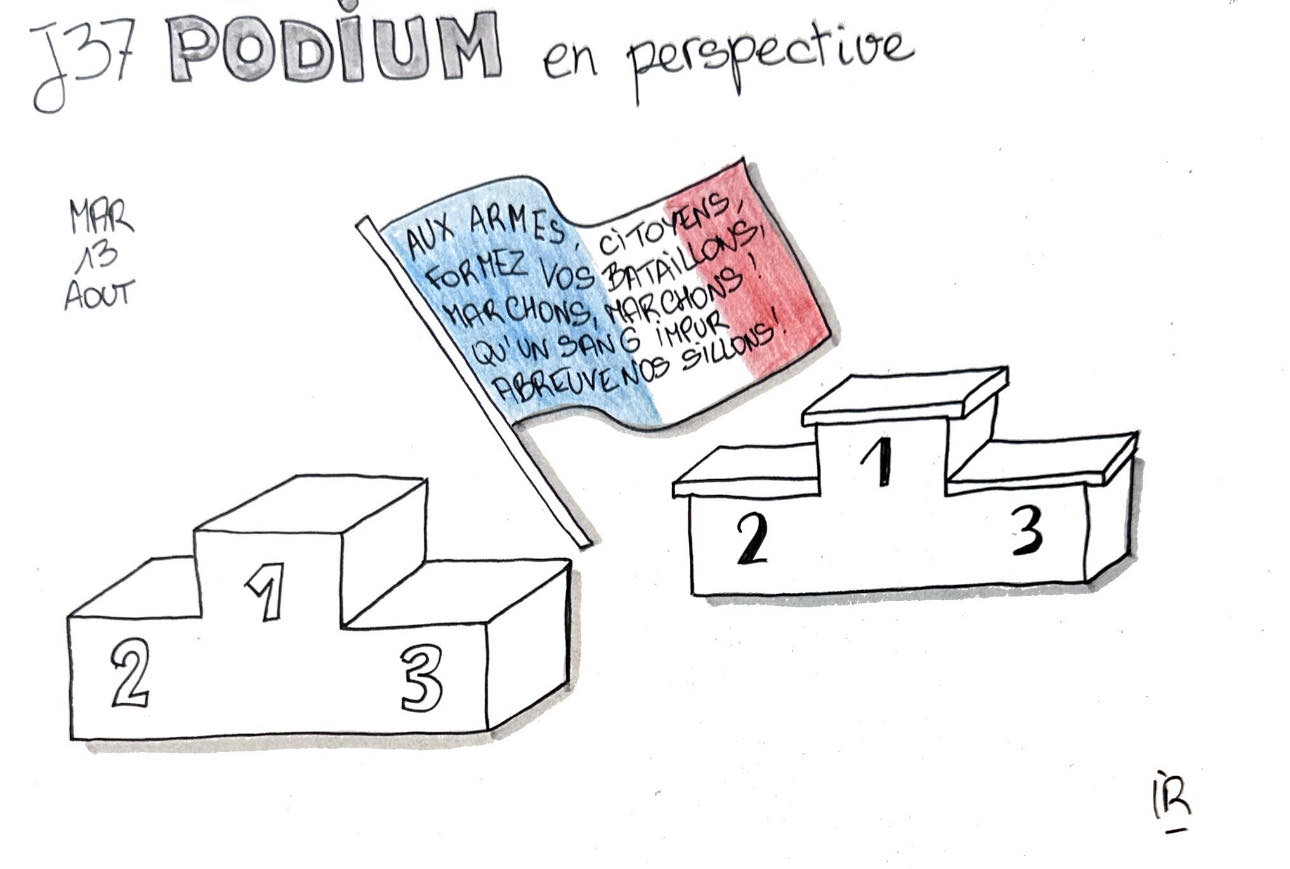 J37 PODIUM en perspective
MAR
13
AOUT
AUX ARMES, CITOYENS,
FORMEZ VOS BATAILLONS,
MARCHONS, MARCHONS !
QU'UN SANG IMPUR
ABREUVE NOS SILLONS !
1
2 3
1
2 3
IR